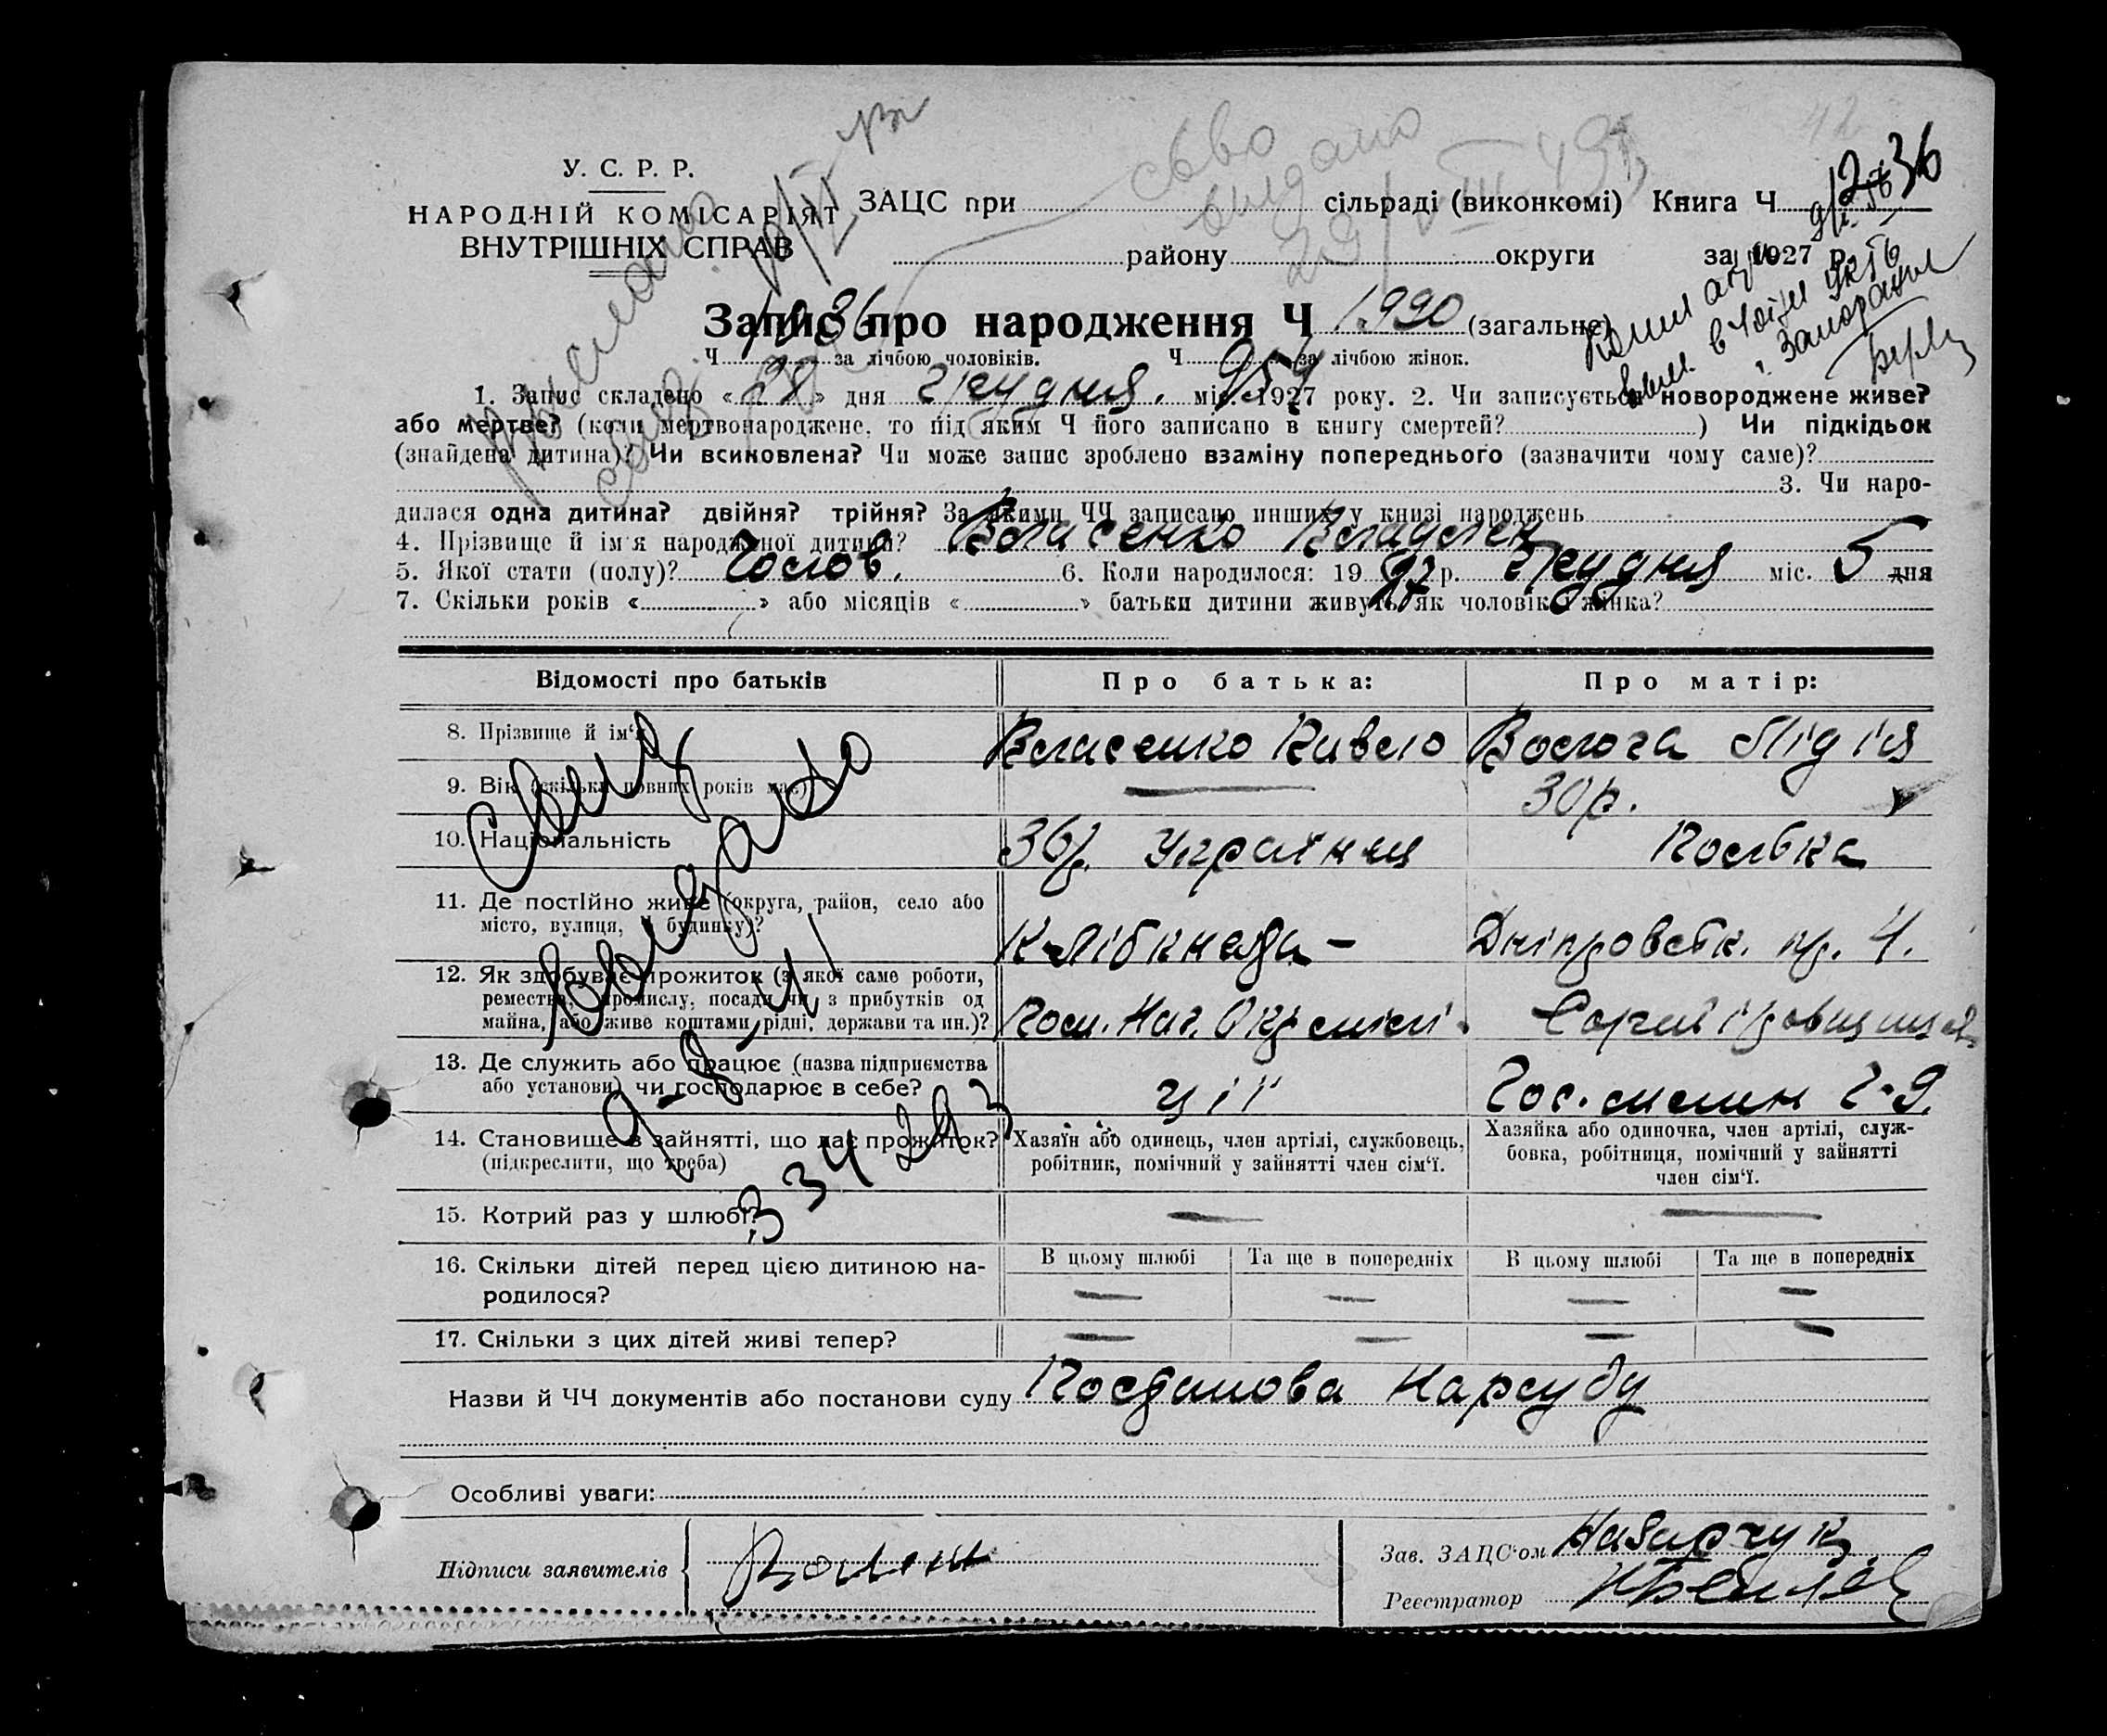 У. С. Р. Р.
НАРОДНІЙ КОМІСАРІЯТ
ВНУТРІШНІХ СПРАВ
ЗАЦС при сільраді (виконкомі) Книга Ч
району округи за 1927 р.
видано
Запис про народження Ч 1990 (загальне)
Ч 1036 за лічбою чоловіків. Ч 954 за лічбою жінок.
1. Запис складено «28» дня грудня міс. 1927 року. 2. Чи записується новороджене живе?
або мертве? (коли мертвонароджене, то під яким Ч його записано в книгу смертей? ) Чи підкідьок
(знайдена дитина)? Чи всиновлена? Чи може запис зроблено взаміну попереднього (зазначити чому саме)?
3. Чи наро-
дилася одна дитина? двійня? трійня? За якими ЧЧ записано инших у книзі народжень
4. Прізвище й ім'я народженої дитини? Власенко Владлен
5. Якої стати (полу)? Чолов. 6. Коли народилося: 1927 р. Грудня міс. 5 дня
7. Скільки років « » або місяців « » батьки дитини живуть як чоловік і жінка?
Відомості про батьків Про батька: Про матір:
8. Прізвище й ім'я Власенко Павло Волога Лідія
9. Вік (скільки повних років має) 30р.
10. Національність 36р. Українец Полька
11. Де постійно живе (округа, район, село або
місто, вулиця, Ч будинку)? К-Лібкнехта - Дніпровськ. пр. 4.
12. Як здобуває прожиток (з якої саме роботи,
ремества, промислу, посади чи з прибутків од
майна, або живе коштами рідні, держави та ин.)? Пом. Нач. Окр міліції
13. Де служить або працює (назва підприємства
або установи) чи господарює в себе?
14. Становище в зайнятті, що дає прожиток?
(підкреслити, що треба)
Хазяїн або одинець, член артілі, службовець,
робітник, помічний у зайнятті член сім'ї.
Хазяйка або одиночка, член артілі, служ-
бовка, робітниця, помічний у зайнятті
член сім'ї.
15. Котрий раз у шлюбі?
16. Скільки дітей перед цією дитиною на-
родилося?
В цьому шлюбі Та ще в попередніх В цьому шлюбі Та ще в попередніх
17. Скільки з цих дітей живі тепер?
Назви й ЧЧ документів або постанови суду Постанова Нарсуду
Особливі уваги:
Підписи заявителів
Зав. ЗАЦС'ом Назарчук
Реєстратор
Свид
выдано
334293